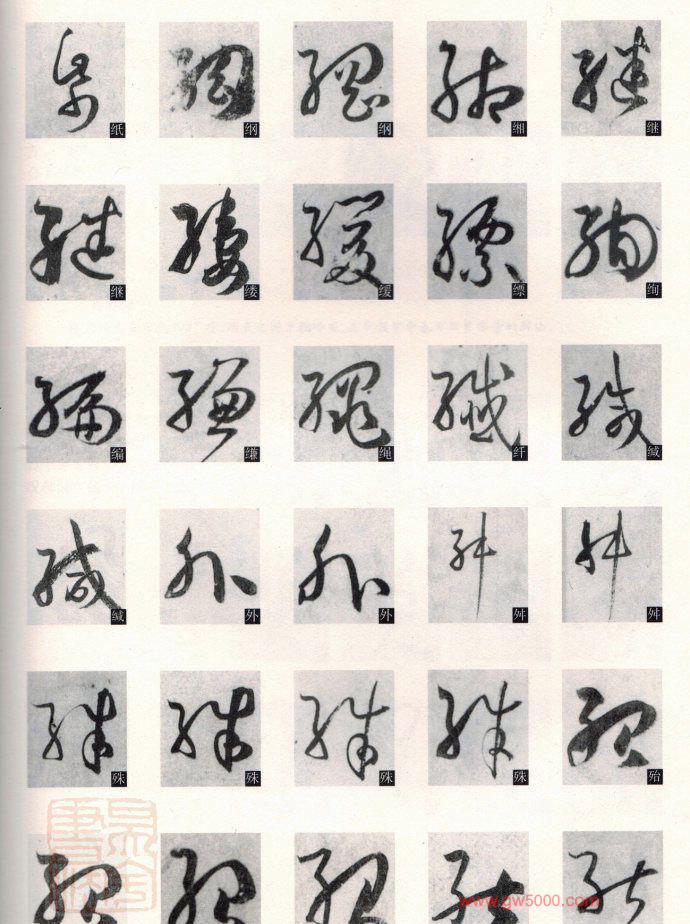 纸 纲 纲 缃 继
继 缕 缓 缥 绚
编 缣 绳 纤 缄
缄 外 外 舛 舛
殊 殊 殊 殊 殆
www.gw5000.com